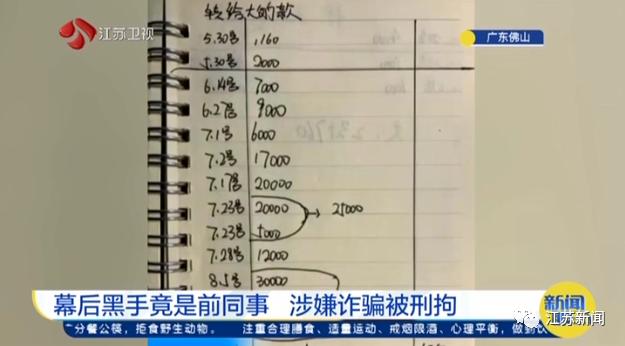 江苏卫视
广东佛山
转给大的款
5.30号 1160
5.30号 2000
6.14号 7000
6.27号 9000
7.1号 6000
7.2号 17000
7.17号 20000
7.23号 20000 → 25000
7.23号 5000
7.28号 12000
8.5号 30000
幕后黑手竟是前同事 涉嫌诈骗被刑拘
新闻
分餐公筷，拒食野生动物。 注重合理膳食、适量运动、戒烟限酒、心理平衡，做到
江苏新闻